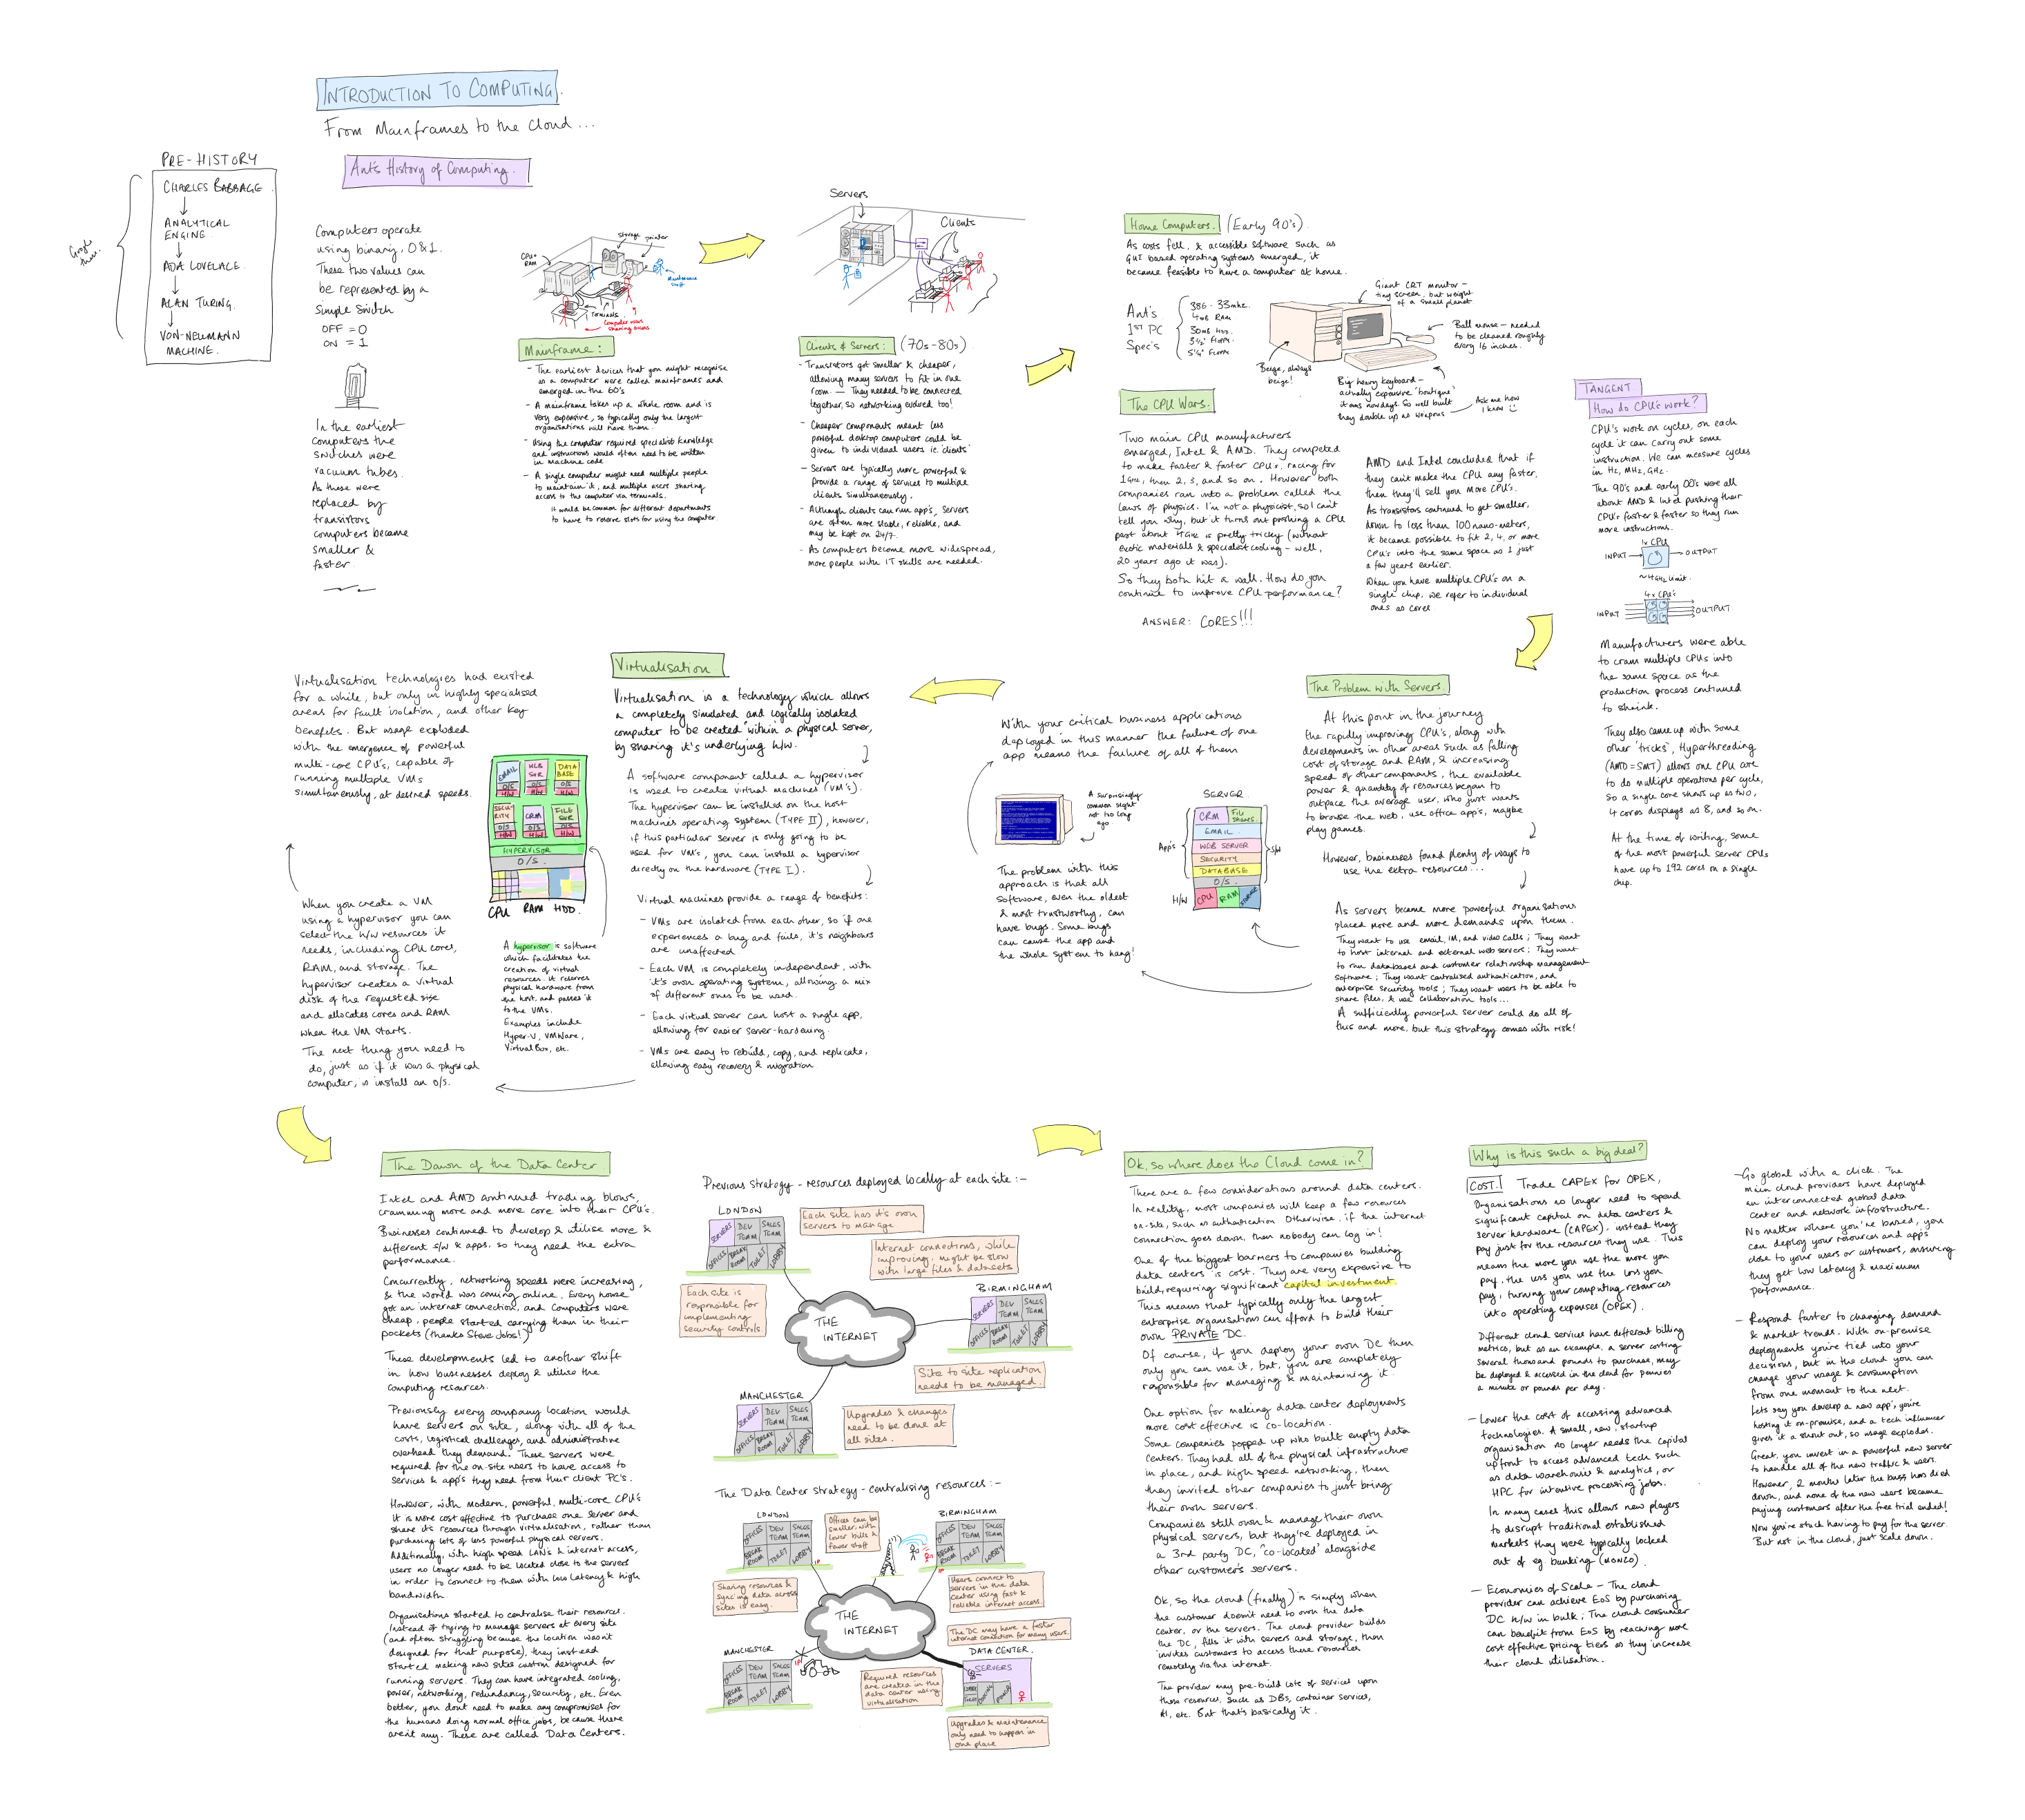 INTRODUCTION TO COMPUTING.
From Mainframes to the Cloud...
Ant's History of Computing.
PRE-HISTORY
CHARLES BABBAGE.
ANALYTICAL
ENGINE
ADA LOVELACE.
ALAN TURING.
VON-NEUMANN
MACHINE.
Google
them.
Computers operate
using binary, 0 & 1.
These two values can
be represented by a
simple switch
OFF = 0
ON = 1
In the earliest
computers the
switches were
vacuum tubes.
As these were
replaced by
transistors
computers became
smaller &
faster.
CPU +
RAM
storage
printer
Maintenance
staff
Terminals
Computer users
sharing access
Mainframe:
- The earliest devices that you might recognise
as a computer were called mainframes and
emerged in the 60's
- A mainframe takes up a whole room and is
very expensive, so typically only the largest
organisations will have them.
- Using the computer required specialist knowledge
and instructions would often need to be written
in machine code
- A single computer might need multiple people
to maintain it, and multiple users sharing
access to the computer via terminals.
It would be common for different departments
to have to reserve slots for using the computer.
Servers
Clients
Clients & Servers: (70s-80s)
- Transistors got smaller & cheaper,
allowing many servers to fit in one
room. — They needed to be connected
together, so networking evolved too!
- Cheaper components meant less
powerful desktop computers could be
given to individual users ie. 'clients'
- Servers are typically more powerful &
provide a range of services to multiple
clients simultaneously.
- Although clients can run app's, servers
are often more stable, reliable, and
may be kept on 24/7.
- As computers become more widespread,
more people with IT skills are needed.
Home Computers. (Early 90's)
As costs fell, & accessible software such as
GUI based operating systems emerged, it
became feasible to have a computer at home.
Ant's
1ST PC
Spec's
386 - 33mhz
4mB RAM
30mB HDD
3 1/2" FLOPPY
5 1/4" FLOPPY
Giant CRT monitor -
tiny screen, but weight
of a small planet
Ball mouse - needed
to be cleaned roughly
every 16 inches.
Beige, always
beige!
Big heavy keyboard -
actually expensive 'boutique'
items nowadays. So well built
they double up as weapons
Ask me how
I know
The CPU Wars.
Two main CPU manufacturers
emerged, Intel & AMD. They competed
to make faster & faster CPU's, racing for
1GHz, then 2, 3, and so on. However both
companies ran into a problem called the
laws of physics. I'm not a physicist, so I can't
tell you why, but it turns out pushing a CPU
past about 4GHz is pretty tricky (without
exotic materials & specialist cooling - well,
20 years ago it was).
So they both hit a wall. How do you
continue to improve CPU performance?
ANSWER: CORES!!!
AMD and Intel concluded that if
they can't make the CPU any faster,
then they'll sell you more CPU's.
As transistors continued to get smaller,
down to less than 100 nano-meters,
it became possible to fit 2, 4, or more
CPU's into the same space as 1 just
a few years earlier.
When you have multiple CPU's on a
single chip, we refer to individual
ones as cores
TANGENT
How do CPU's work?
CPU's work on cycles, on each
cycle it can carry out some
instruction. We can measure cycles
in Hz, MHz, GHz.
The 90's and early 00's were all
about AMD & Intel pushing their
CPU's faster & faster so they run
more instructions.
1x CPU
INPUT
OUTPUT
~4GHz Limit.
4x CPU's
INPUT
OUTPUT
Manufacturers were able
to cram multiple CPUs into
the same space as the
production process continued
to shrink.
They also came up with some
other 'tricks', Hyperthreading
(AMD = SMT) allows one CPU core
to do multiple operations per cycle,
so a single core shows up as two,
4 cores displays as 8, and so on.
At the time of writing, some
of the most powerful server CPUs
have up to 192 cores on a single
chip.
The Problem with Servers.
At this point in the journey
the rapidly improving CPU's, along with
developments in other areas such as falling
cost of storage and RAM, & increasing
speed of other components, the available
power & quantity of resources began to
outpace the average user, who just wants
to browse the web, use office app's, maybe
play games.
However, businesses found plenty of ways to
use the extra resources...
As servers became more powerful organisations
placed more and more demands upon them.
They want to use email, IM, and video calls; They want
to host internal and external web servers; They want
to run databases and customer relationship management
software; They want centralised authentication, and
enterprise security tools; They want users to be able to
share files, & use collaboration tools...
A sufficiently powerful server could do all of
this and more, but this strategy comes with risk!
SERVER
CRM
FILE
SHARES
EMAIL
WEB SERVER
SECURITY
DATABASE
O/S.
CPU
RAM
STORAGE
App's
S/W
H/W
With your critical business applications
deployed in this manner the failure of one
app means the failure of all of them
A surprisingly
common sight
not too long
ago.
The problem with this
approach is that all
software, even the oldest
& most trustworthy, can
have bugs. Some bugs
can cause the app and
the whole system to hang!
Virtualisation
Virtualisation is a technology which allows
a completely simulated and logically isolated
computer to be created within a physical server,
by sharing it's underlying h/w.
A software component called a hypervisor
is used to create virtual machines (VM's).
The hypervisor can be installed on the host
machine's operating system (TYPE II), however,
if this particular server is only going to be
used for VM's, you can install a hypervisor
directly on the hardware (TYPE I).
Virtual machines provide a range of benefits:
- VMs are isolated from each other, so if one
experiences a bug and fails, it's neighbours
are unaffected
- Each VM is completely independent, with
it's own operating system, allowing a mix
of different ones to be used.
- Each virtual server can host a single app,
allowing for easier server-hardening.
- VMs are easy to rebuild, copy, and replicate,
allowing easy recovery & migration
Virtualisation technologies had existed
for a while, but only in highly specialised
areas for fault isolation, and other key
benefits. But usage exploded
with the emergence of powerful
multi-core CPU's, capable of
running multiple VMs
simultaneously, at desired speeds.
EMAIL
O/S
H/W
WEB
SVR
O/S
H/W
DATA
BASE
O/S
H/W
SECU-
RITY
O/S
H/W
CRM
O/S
H/W
FILE
SVR
O/S
H/W
HYPERVISOR
O/S.
CPU RAM HDD.
When you create a VM
using a hypervisor you can
select the h/w resources it
needs, including CPU cores,
RAM, and storage. The
hypervisor creates a virtual
disk of the requested size
and allocates cores and RAM
when the VM starts.
The next thing you need to
do, just as if it was a physical
computer, is install an O/S.
A hypervisor is software
which facilitates the
creation of virtual
resources. It reserves
physical hardware from
the host, and passes it
to the VMs.
Examples include
Hyper-V, VMWare,
VirtualBox, etc.
The Dawn of the Data Center
Intel and AMD continued trading blows,
cramming more and more core into their CPU's.
Businesses continued to develop & utilise more &
different s/w & apps, so they need the extra
performance.
Concurrently, networking speeds were increasing,
& the world was coming online. Every house
got an internet connection, and computers were
cheap, people started carrying them in their
pockets (thanks Steve Jobs!)
These developments led to another shift
in how businesses deploy & utilise the
computing resources.
Previously every company location would
have servers on site, along with all of the
costs, logistical challenges, and administrative
overhead they demand. These servers were
required for the on-site users to have access to
services & app's they need from their client PC's.
However, with modern, powerful, multi-core CPU's
it is more cost effective to purchase one server and
share it's resources through virtualisation, rather than
purchasing lots of less powerful physical servers.
Additionally, with high speed LANs & internet access,
users no longer need to be located close to the servers
in order to connect to them with low latency & high
bandwidth
Organisations started to centralise their resources.
Instead of trying to manage servers at every site
(and often struggling because the location wasn't
designed for that purpose), they instead
started making new sites custom designed for
running servers. They can have integrated cooling,
power, networking, redundancy, security, etc. Even
better, you don't need to make any compromises for
the humans doing normal office jobs, because there
aren't any. These are called Data Centers.
Previous strategy - resources deployed locally at each site :-
LONDON
SERVERS
DEV
TEAM
SALES
TEAM
OFFICES
BREAK
ROOM
TOILET
LOBBY
Each site has it's own
servers to manage
Internet connections, while
improving, might be slow
with large files & datasets
Each site is
responsible for
implementing
security controls
THE
INTERNET
BIRMINGHAM
SERVERS
DEV
TEAM
SALES
TEAM
OFFICES
BREAK
ROOM
TOILET
LOBBY
Site to site replication
needs to be managed.
MANCHESTER
SERVERS
DEV
TEAM
SALES
TEAM
OFFICES
BREAK
ROOM
TOILET
LOBBY
Upgrades & changes
need to be done at
all sites.
The Data Center strategy - centralising resources :-
LONDON
OFFICES
DEV
TEAM
SALES
TEAM
BREAK
ROOM
TOILET
LOBBY
Offices can be
smaller, with
lower bills &
fewer staff
BIRMINGHAM
OFFICES
DEV
TEAM
SALES
TEAM
BREAK
ROOM
TOILET
LOBBY
Sharing resources &
syncing data across
sites is easy.
Users connect to
servers in the data
center using fast &
reliable internet access.
THE
INTERNET
The DC may have a faster
internet connection for many users.
MANCHESTER
OFFICES
DEV
TEAM
SALES
TEAM
BREAK
ROOM
TOILET
LOBBY
Required resources
are created in the
data center using
virtualisation
DATA CENTER.
SERVERS
LOBBY
TOILET
COOLING
POWER
Upgrades & maintenance
only need to happen in
one place
Ok, so where does the Cloud come in?
There are a few considerations around data centers.
In reality, most companies will keep a few resources
on-site, such as authentication. Otherwise, if the internet
connection goes down, then nobody can log in!
One of the biggest barriers to companies building
data centers is cost. They are very expensive to
build, requiring significant capital investment.
This means that typically only the largest
enterprise organisations can afford to build their
own PRIVATE DC.
Of course, if you deploy your own DC then
only you can use it, but, you are completely
responsible for managing & maintaining it.
One option for making data center deployments
more cost effective is co-location.
Some companies popped up who built empty data
centers. They had all of the physical infrastructure
in place, and high speed networking, then
they invited other companies to just bring
their own servers.
Companies still own & manage their own
physical servers, but they're deployed in
a 3rd party DC, 'co-located' alongside
other customer's servers.
Ok, so the cloud (finally) is simply when
the customer doesn't need to own the data
center, or the servers. The cloud provider builds
the DC, fills it with servers and storage, then
invites customers to access these resources
remotely via the internet.
The provider may pre-build lots of services upon
those resources, such as DBs, container services,
AI, etc. But that's basically it.
Why is this such a big deal?
COST! Trade CAPEX for OPEX,
Organisations no longer need to spend
significant capital on data centers &
server hardware (CAPEX), instead they
pay just for the resources they use. This
means the more you use the more you
pay, the less you use the less you
pay, turning your computing resources
into operating expenses (OPEX).
Different cloud services have different billing
metrics, but as an example, a server costing
several thousand pounds to purchase, may
be deployed & accessed in the cloud for pennies
a minute or pounds per day.
- Lower the cost of accessing advanced
technologies. A small, new, startup
organisation no longer needs the capital
upfront to access advanced tech such
as data warehouses & analytics, or
HPC for intensive processing jobs.
In many cases this allows new players
to disrupt traditional established
markets they were typically locked
out of eg banking (MONZO).
- Economies of Scale - The cloud
provider can achieve EoS by purchasing
DC h/w in bulk; The cloud consumer
can benefit from EoS by reaching more
cost effective pricing tiers as they increase
their cloud utilisation.
- Go global with a click. The
main cloud providers have deployed
an interconnected global data
center and network infrastructure.
No matter where you're based, you
can deploy your resources and apps
close to your users or customers, ensuring
they get low latency & maximum
performance.
- Respond faster to changing demand
& market trends. With on-premise
deployments you're tied into your
decisions, but in the cloud you can
change your usage & consumption
from one moment to the next.
Lets say you develop a new app, you're
hosting it on-premise, and a tech influencer
gives it a shout out, so usage explodes.
Great, you invest in a powerful new server
to handle all of the new traffic & users.
However, 2 months later the buzz has died
down, and none of the new users became
paying customers after the free trial ended!
Now you're stuck having to pay for the server.
But not in the cloud, just scale down.